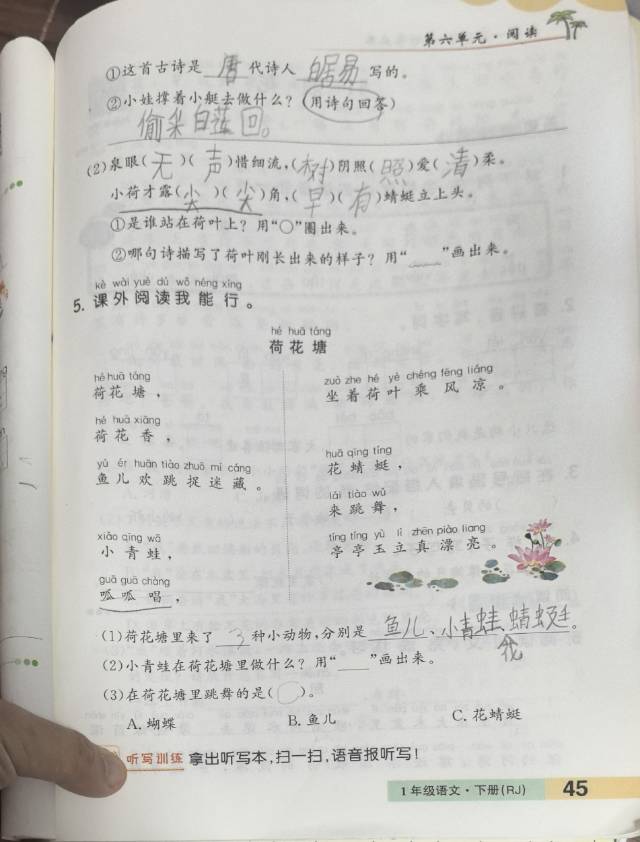 第六单元·阅读
①这首古诗是 唐 代诗人 白居易 写的。
②小娃撑着小艇去做什么?(用诗句回答)
偷采白莲回。
(2)泉眼(无)(声)惜细流,(树)阴照(照)爱(清)柔。
小荷才露(尖)(尖)角,(早)(有)蜻蜓立上头。
①是谁站在荷叶上?用“○”圈出来。
②哪句诗描写了荷叶刚长出来的样子?用“____”画出来。
kè wài yuè dú wǒ néng xíng
5. 课外阅读我能行。
hé huā táng
荷花塘
hé huā táng
荷花塘,
hé huā xiāng
荷花香,
yú ér huān tiào zhuō mí cáng
鱼儿欢跳捉迷藏。
xiǎo qīng wā
小青蛙,
guā guā chàng
呱呱唱,
zuò zhe hé yè chéng fēng liáng
坐着荷叶乘风凉。
huā qīng tíng
花蜻蜓,
lái tiào wǔ
来跳舞,
tíng tíng yù lì zhēn piào liang
亭亭玉立真漂亮。
(1)荷花塘里来了 3 种小动物,分别是 鱼儿、小青蛙、蜻蜓。
花
(2)小青蛙在荷花塘里做什么?用“____”画出来。
(3)在荷花塘里跳舞的是( )。
A. 蝴蝶 B. 鱼儿 C. 花蜻蜓
听写训练 拿出听写本,扫一扫,语音报听写!
1年级语文·下册(RJ) 45